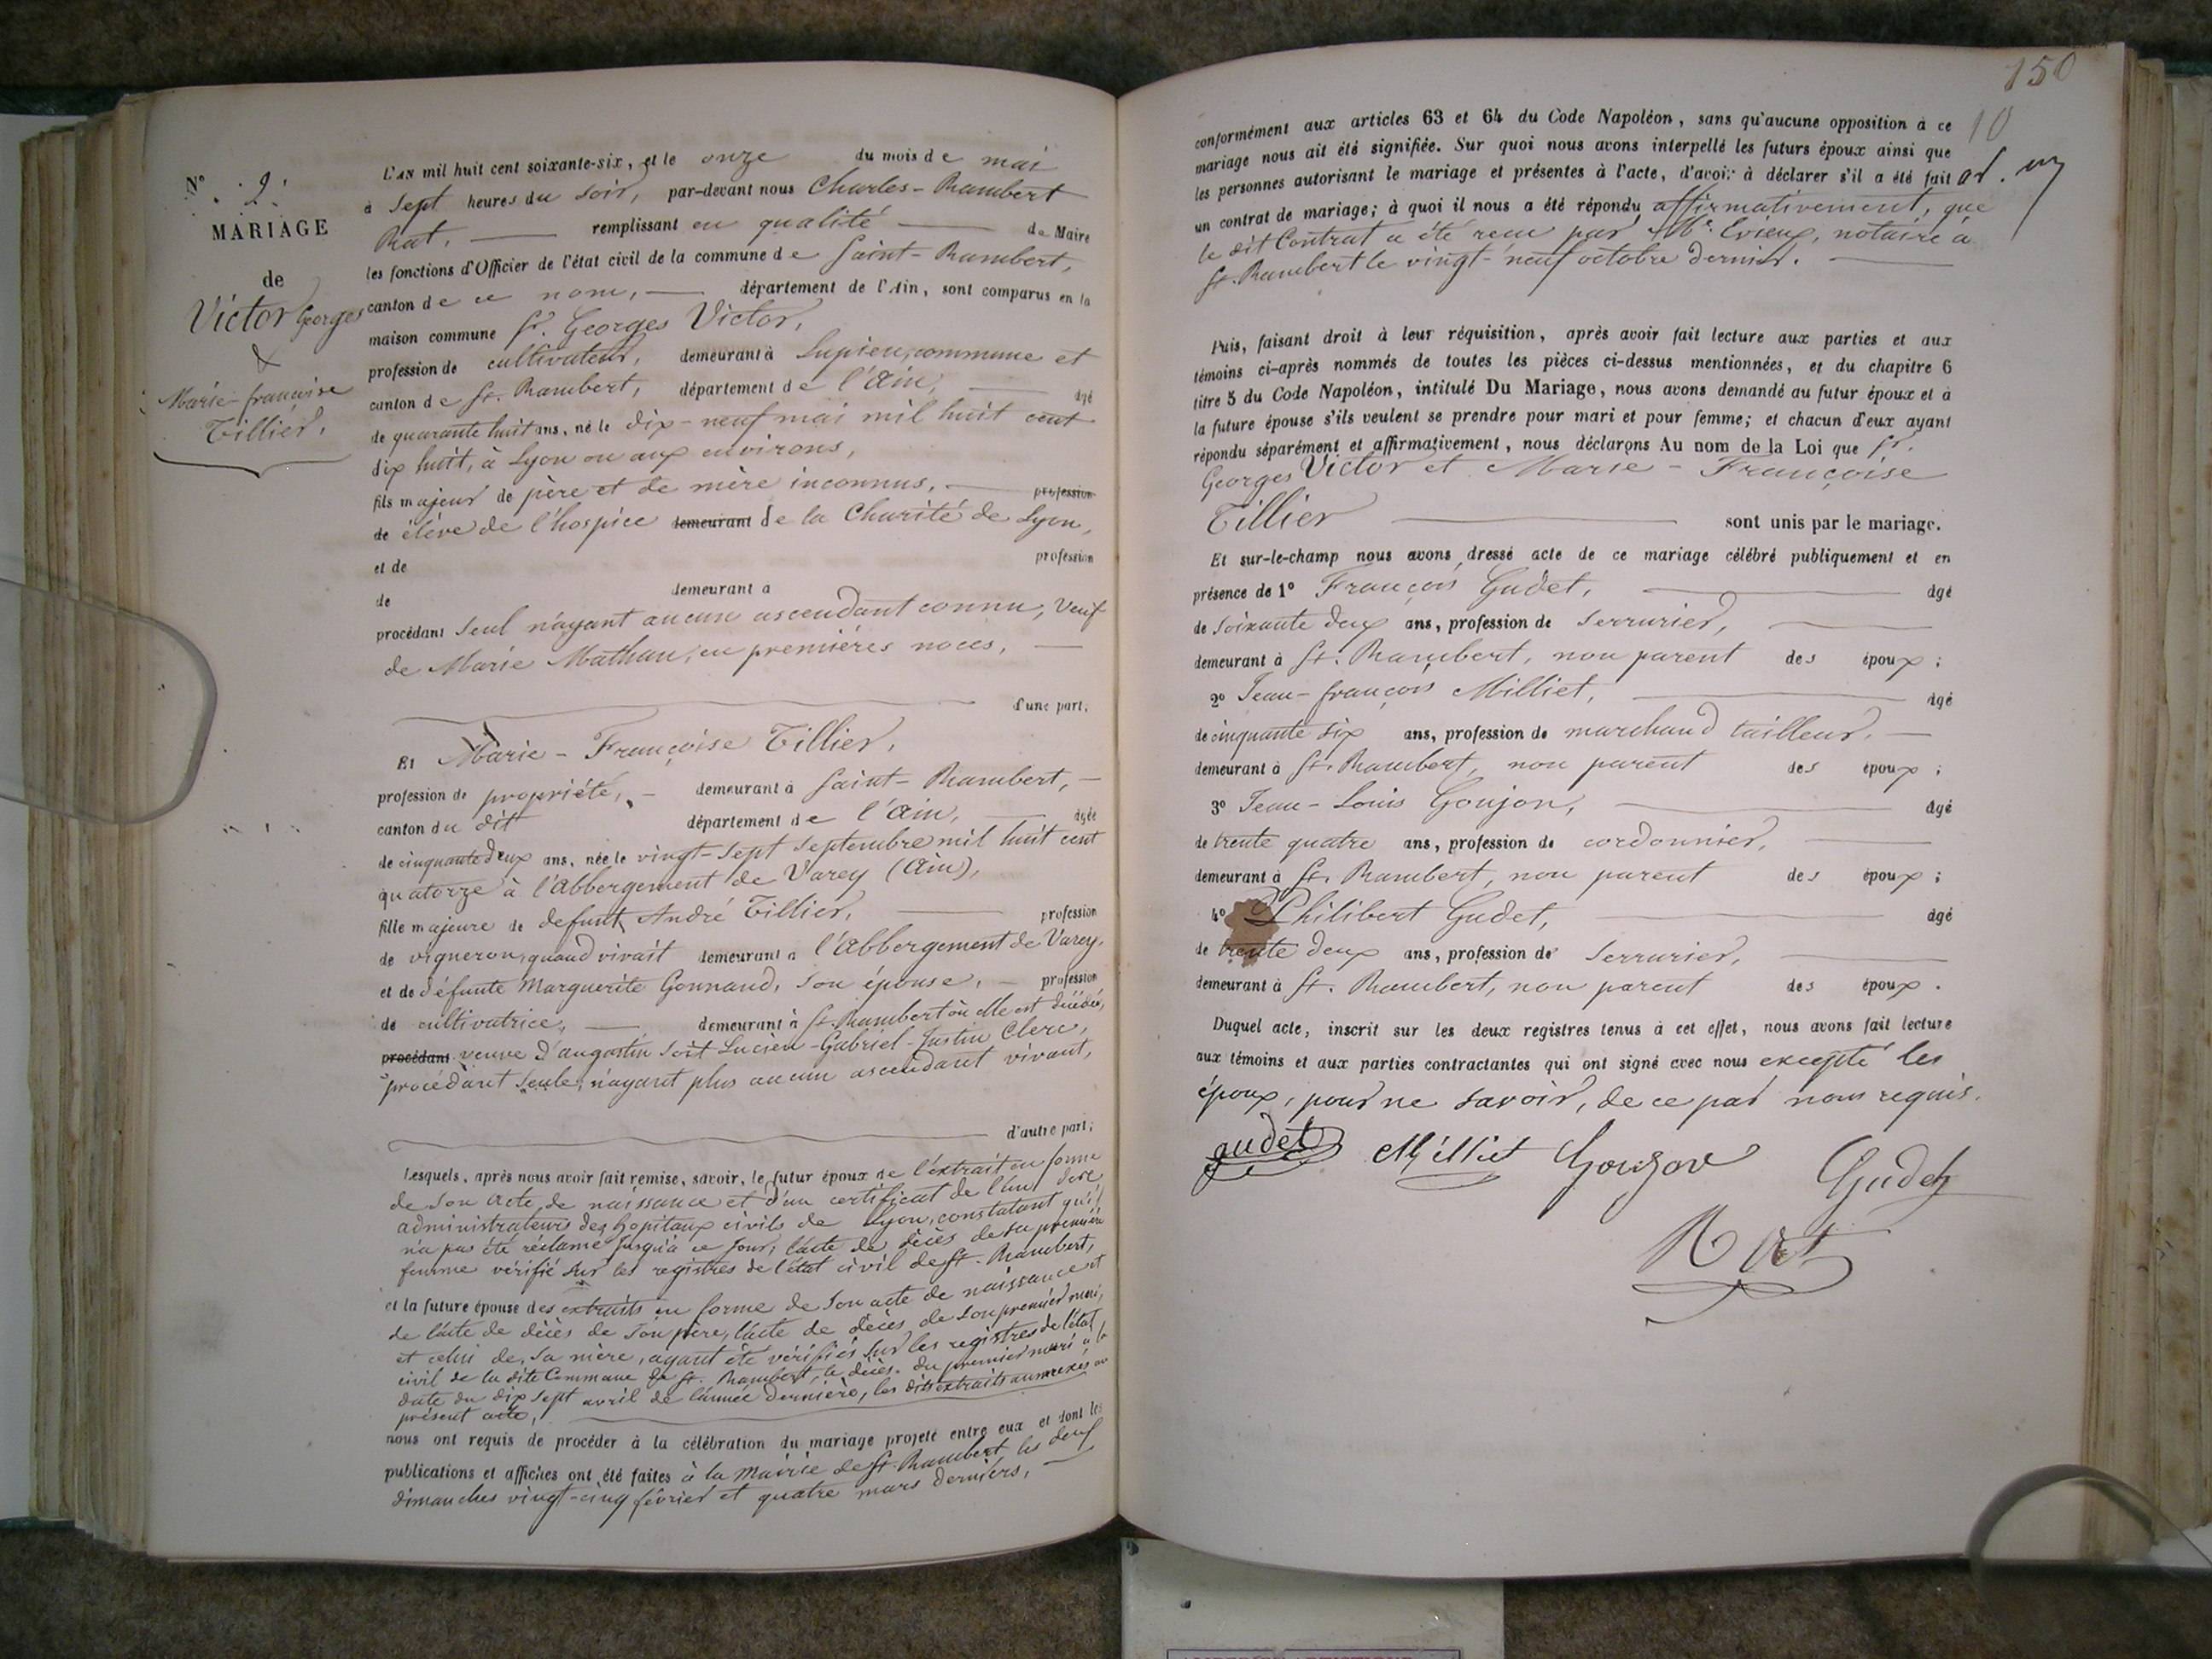 N° 2.
MARIAGE
de
Victor Georges
&
Marie-françoise
Tillier.
L'AN mil huit cent soixante-six, et le onze du mois de mai
à sept heures du soir, par-devant nous Charles-Rambert
Rat, remplissant en qualité de Maire
les fonctions d'Officier de l'état civil de la commune de Saint-Rambert,
canton de ce nom, département de l'Ain, sont comparus en la
maison commune Sr. Georges Victor,
profession de cultivateur, demeurant à Supieu, commune et
canton de St. Rambert, département de l'Ain, âgé
de quarante huit ans, né le dix-neuf mai mil huit cent
dix huit, à Lyon ou aux environs,
fils majeur de père et de mère inconnus, profession
de élève de l'hospice demeurant de la Charité de Lyon,
et de profession
de demeurant à
procédant seul n'ayant aucun ascendant connu, veuf
de Marie Mathan, en premières noces,
d'une part,
Et Marie-Françoise Tillier,
profession de propriété, demeurant à Saint-Rambert,
canton du dit département de l'Ain, âgée
de cinquante deux ans, née le vingt-sept septembre mil huit cent
quatorze à l'abbergement de Varey (Ain),
fille majeure de defunt André Tillier, profession
de vigneron, quand vivait demeurant à l'abbergement de Varey,
et de défunte Marguerite Gonnand, son épouse, profession
de cultivatrice, demeurant à St. Rambert où elle est décédée,
procédant veuve d'augustin soit Lucien-Gabriel-Justin Clerc,
procédant seule, n'ayant plus aucun ascendant vivant,
d'autre part;
Lesquels, après nous avoir fait remise, savoir, le futur époux de l'extrait en forme
de son acte de naissance et d'un certificat de l'un des
administrateurs des hopitaux civils de Lyon, constatant qu'il
n'a pas été réclamé jusqu'à ce jour, l'acte de décès de sa première
femme vérifié sur les registres de l'état civil de St. Rambert,
et la future épouse des extraits en forme de son acte de naissance et
de l'acte de décès de son père, l'acte de décès de son premier mari,
et celui de sa mère, ayant été vérifiés sur les registres de l'état
civil de la dite Commune de St. Rambert, le décès du premier mari à la
date du dix sept avril de l'année dernière, les dits extraits annexés au
présent acte,
nous ont requis de procéder à la célébration du mariage projeté entre eux et dont les
publications et affiches ont été faites à la Mairie de St. Rambert les deux
dimanches vingt-cinq février et quatre mars derniers,
150
10
conformément aux articles 63 et 64 du Code Napoléon, sans qu'aucune opposition à ce
mariage nous ait été signifiée. Sur quoi nous avons interpellé les futurs époux ainsi que
les personnes autorisant le mariage et présentes à l'acte, d'avoir à déclarer s'il a été fait
un contrat de mariage; à quoi il nous a été répondu affirmativement, que
le dit Contrat a été reçu par Me. notaire à
St. Rambert le vingt-neuf octobre dernier.
Puis, faisant droit à leur réquisition, après avoir fait lecture aux parties et aux
témoins ci-après nommés de toutes les pièces ci-dessus mentionnées, et du chapitre 6
titre 5 du Code Napoléon, intitulé Du Mariage, nous avons demandé au futur époux et à
la future épouse s'ils veulent se prendre pour mari et pour femme; et chacun d'eux ayant
répondu séparément et affirmativement, nous déclarons Au nom de la Loi que Sr.
Georges Victor et Marie-Françoise
Tillier sont unis par le mariage.
Et sur-le-champ nous avons dressé acte de ce mariage célébré publiquement et en
présence de 1° François Gudet, âgé
de soixante deux ans, profession de serrurier,
demeurant à St. Rambert, non parent des époux;
2° Jean-françois Milliet, âgé
de cinquante six ans, profession de marchand tailleur,
demeurant à St. Rambert, non parent des époux;
3° Jean-Louis Goujon, âgé
de trente quatre ans, profession de cordonnier,
demeurant à St. Rambert, non parent des époux;
4° Philibert Gudet, âgé
de trente deux ans, profession de serrurier,
demeurant à St. Rambert, non parent des époux.
Duquel acte, inscrit sur les deux registres tenus à cet effet, nous avons fait lecture
aux témoins et aux parties contractantes qui ont signé avec nous excepté les
époux, pour ne savoir, de ce par nous requis.
gudet Milliet Goujon Gudet
Rat